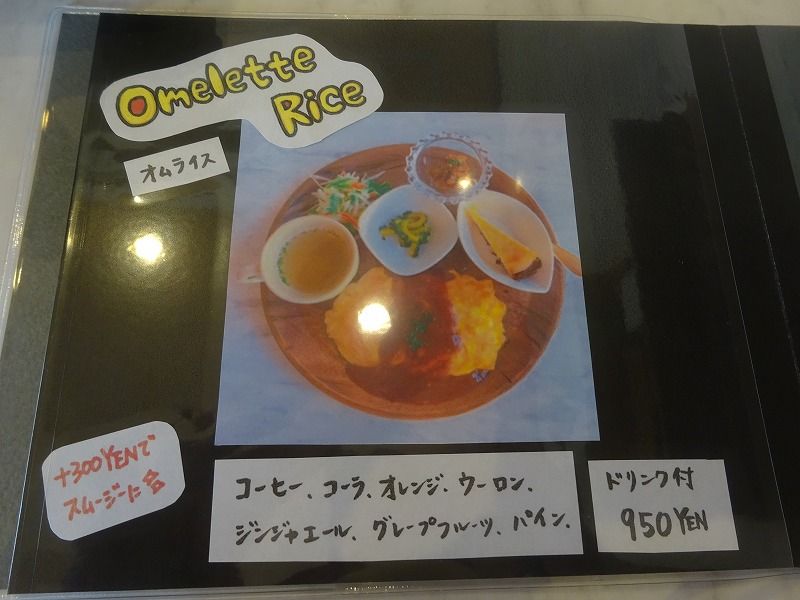 Omelette
Rice
オムライス
+300YENで
スムージーに
コーヒー、コーラ、オレンジ、ウーロン、
ジンジャエール、グレープフルーツ、パイン、
ドリンク付
950YEN